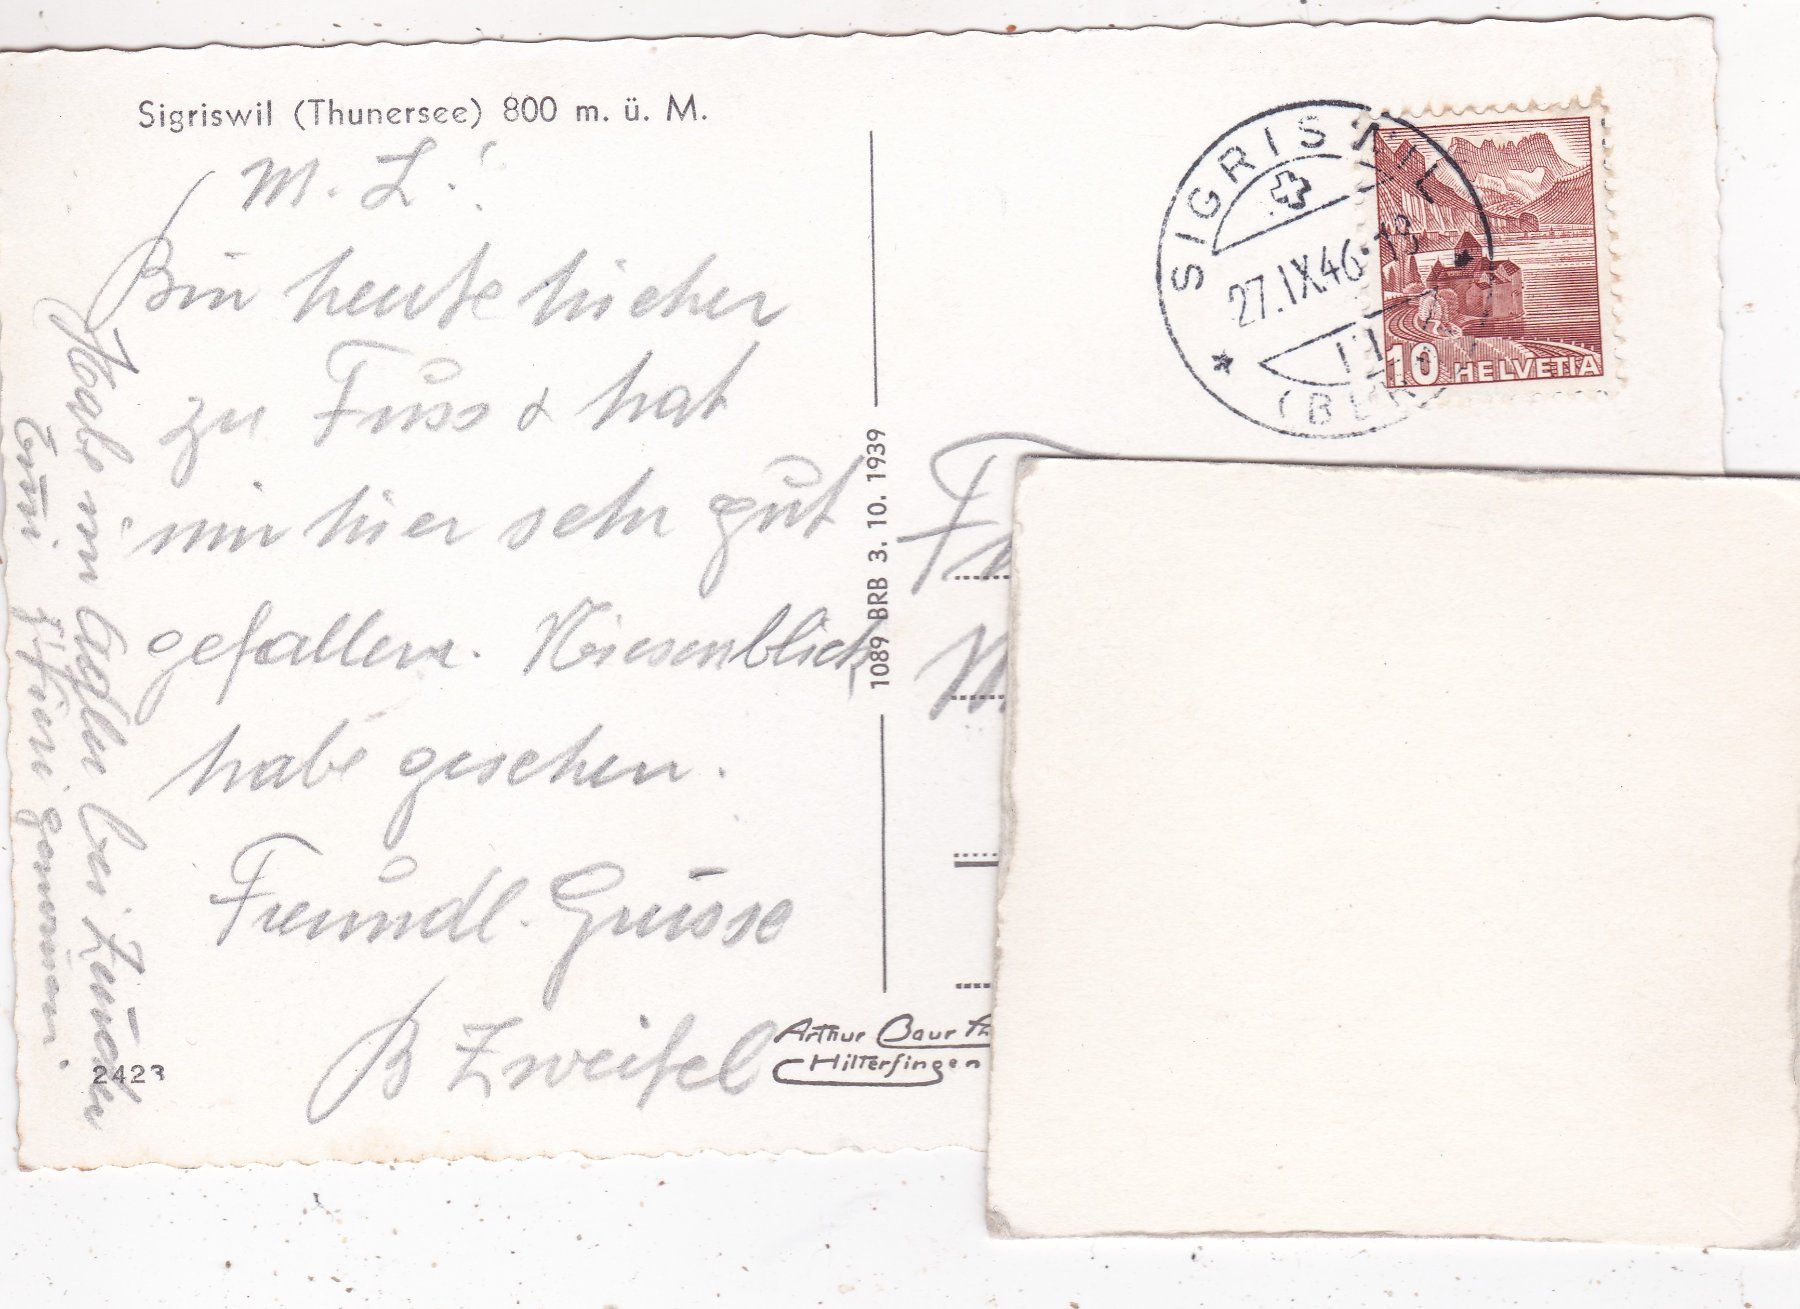 Sigriswil (Thunersee) 800 m. ü. M.
M. L.!
Bin heute hieher
zu Fuss & hat
mir hier sehr gut
gefallen. Niesenblick
habe gesehen.
Freundl. Grüsse
B Zweifel
Habe in bei
Züni gennomen.
2423
1089 BRB 3. 10. 1939
Arthur Baur
Hilterfingen
SIGRISWIL
27.IX.46.18
(BERN)
10 HELVETIA